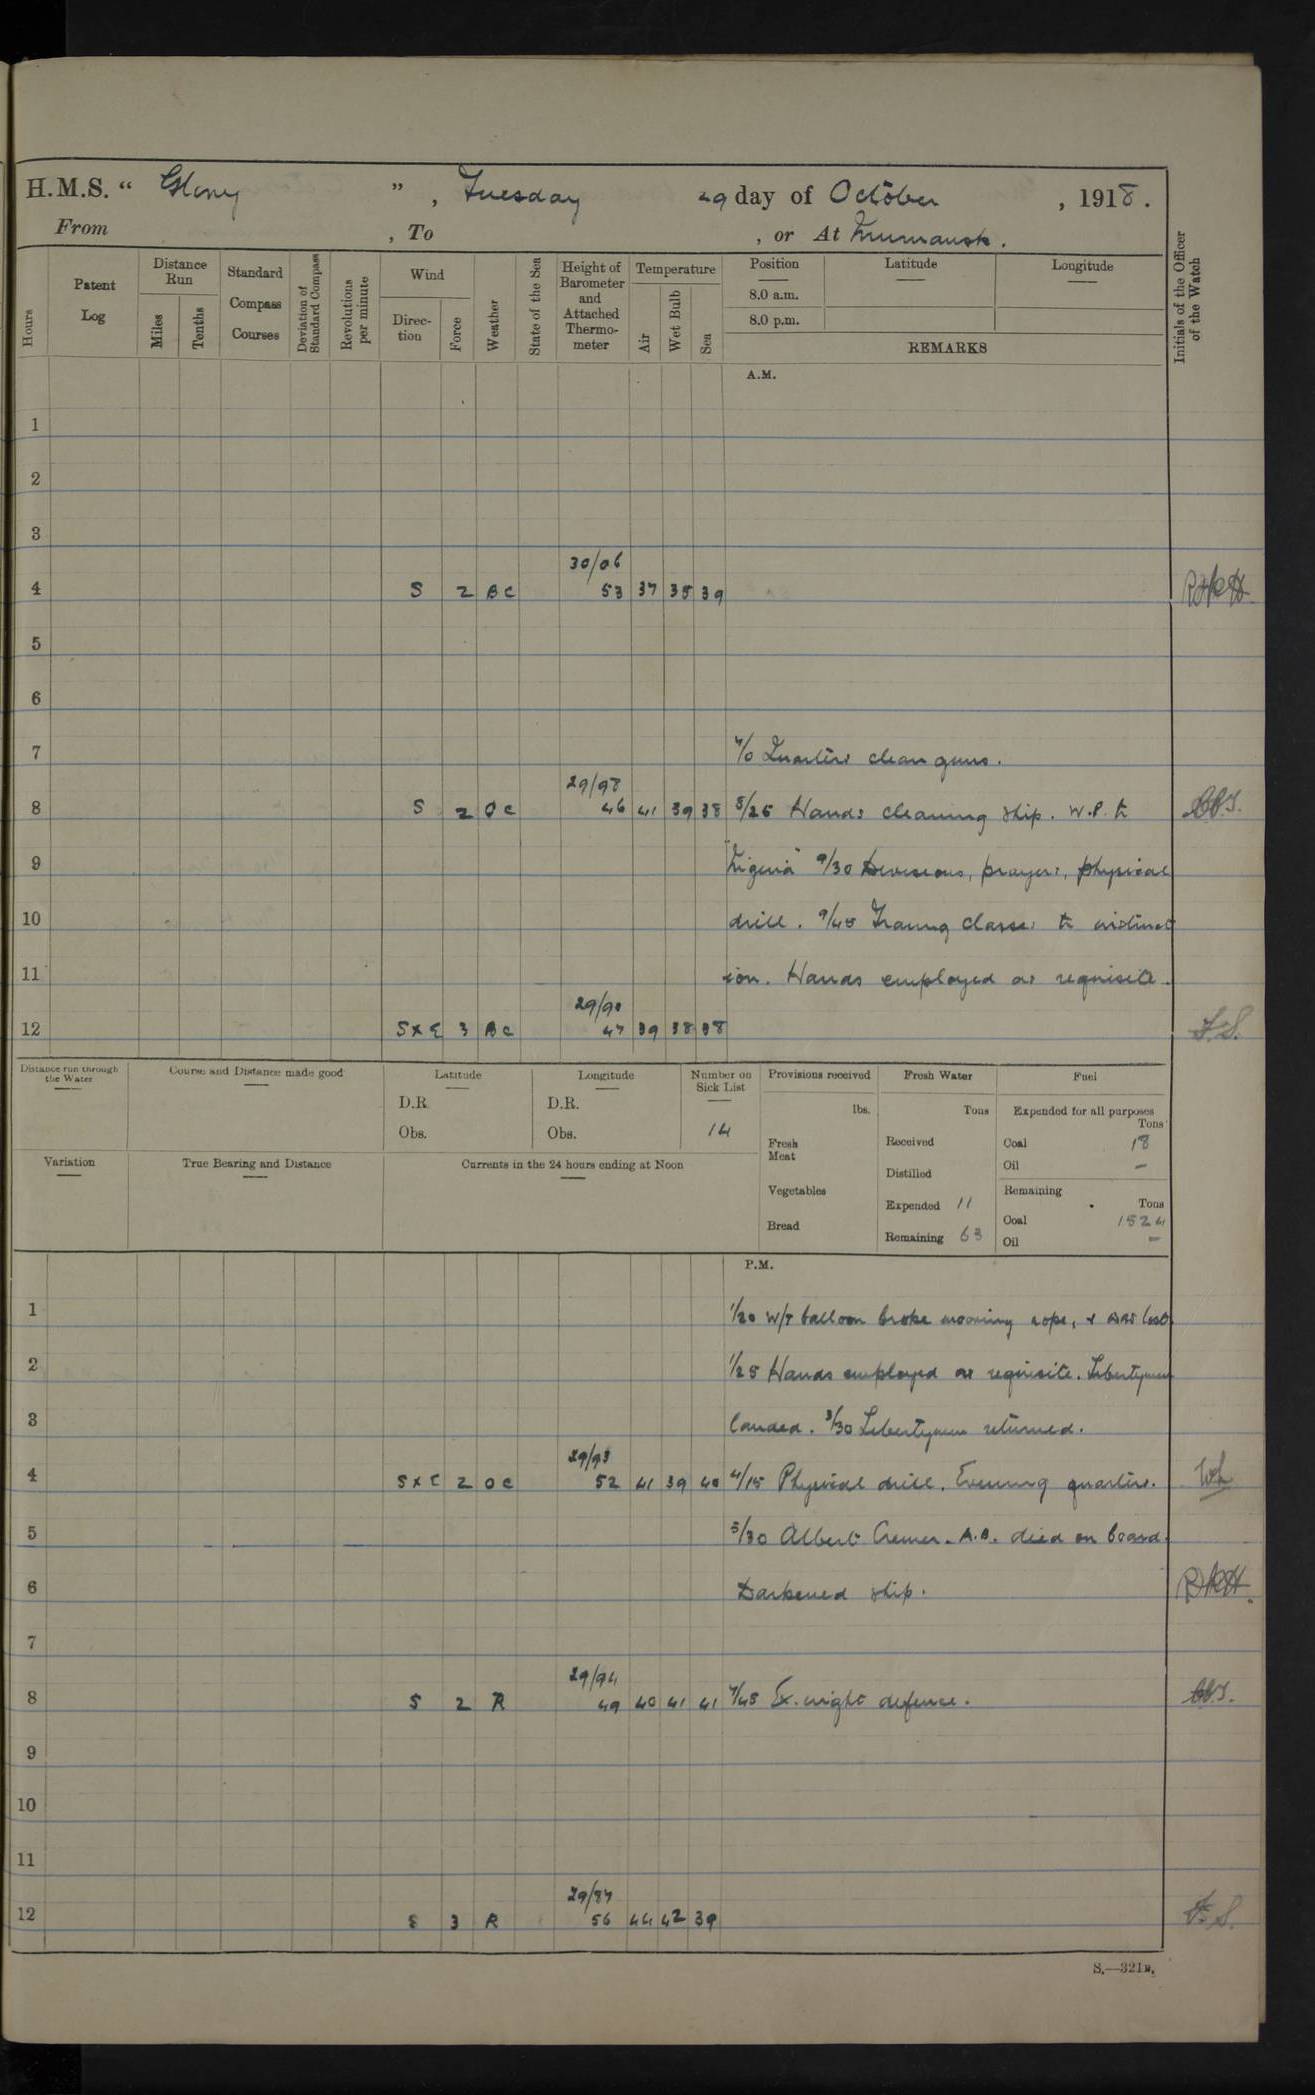 H.M.S. “ Glory ” , Tuesday 29 day of October , 1918 .
From , To , or At Murmansk .
Hours
Patent Log
Distance Run
Miles
Tenths
Standard Compass Courses
Deviation of Standard Compass
Revolutions per minute
Wind
Direc-tion
Force
Weather
State of the Sea
Height of Barometer and Attached Thermo-meter
Temperature
Air
Wet Bulb
Sea
Position
Latitude
Longitude
8.0 a.m.
8.0 p.m.
REMARKS
Initials of the Officer of the Watch
A.M.
1
2
3
30/06
4 S 2 BC 53 37 35 39
5
6
7 7/0 Quarters clean guns.
29/98
8 S 2 OC 46 41 39 38 8/25 Hands cleaning ship. W.P. to
9 "Nigeria" 9/30 Divisions, prayers, physical
10 drill. 9/45 Training classes to instruct
11 ion. Hands employed as requisite.
29/90
12 SxE 3 BC 47 39 38 38 F.S.
Distance run through the Water
Course and Distance made good
Latitude
D.R.
Obs.
Longitude
D.R.
Obs.
Number on Sick List
14
Provisions received
lbs.
Fresh Meat
Vegetables
Bread
Fresh Water
Tons
Received
Distilled
Expended 11
Remaining 63
Fuel
Expended for all purposes
Tons
Coal 18
Oil –
Remaining
Tons
Coal 1524
Oil –
Variation
True Bearing and Distance
Currents in the 24 hours ending at Noon
P.M.
1 1/20 W/T balloon broke mooring rope, & was lost
2 1/25 Hands employed as requisite. Libertymen
3 landed. 3/30 Libertymen returned.
29/93
4 SxE 2 OC 52 41 39 40 4/15 Physical drill. Evening quarters.
5 5/30 Albert Cremer. A.B. died on board.
6 Darkened ship.
7
29/94
8 S 2 R 49 40 41 41 7/45 Ex. night defence.
9
10
11
29/87
12 S 3 R 56 44 42 39 F.S.
S.—321B.